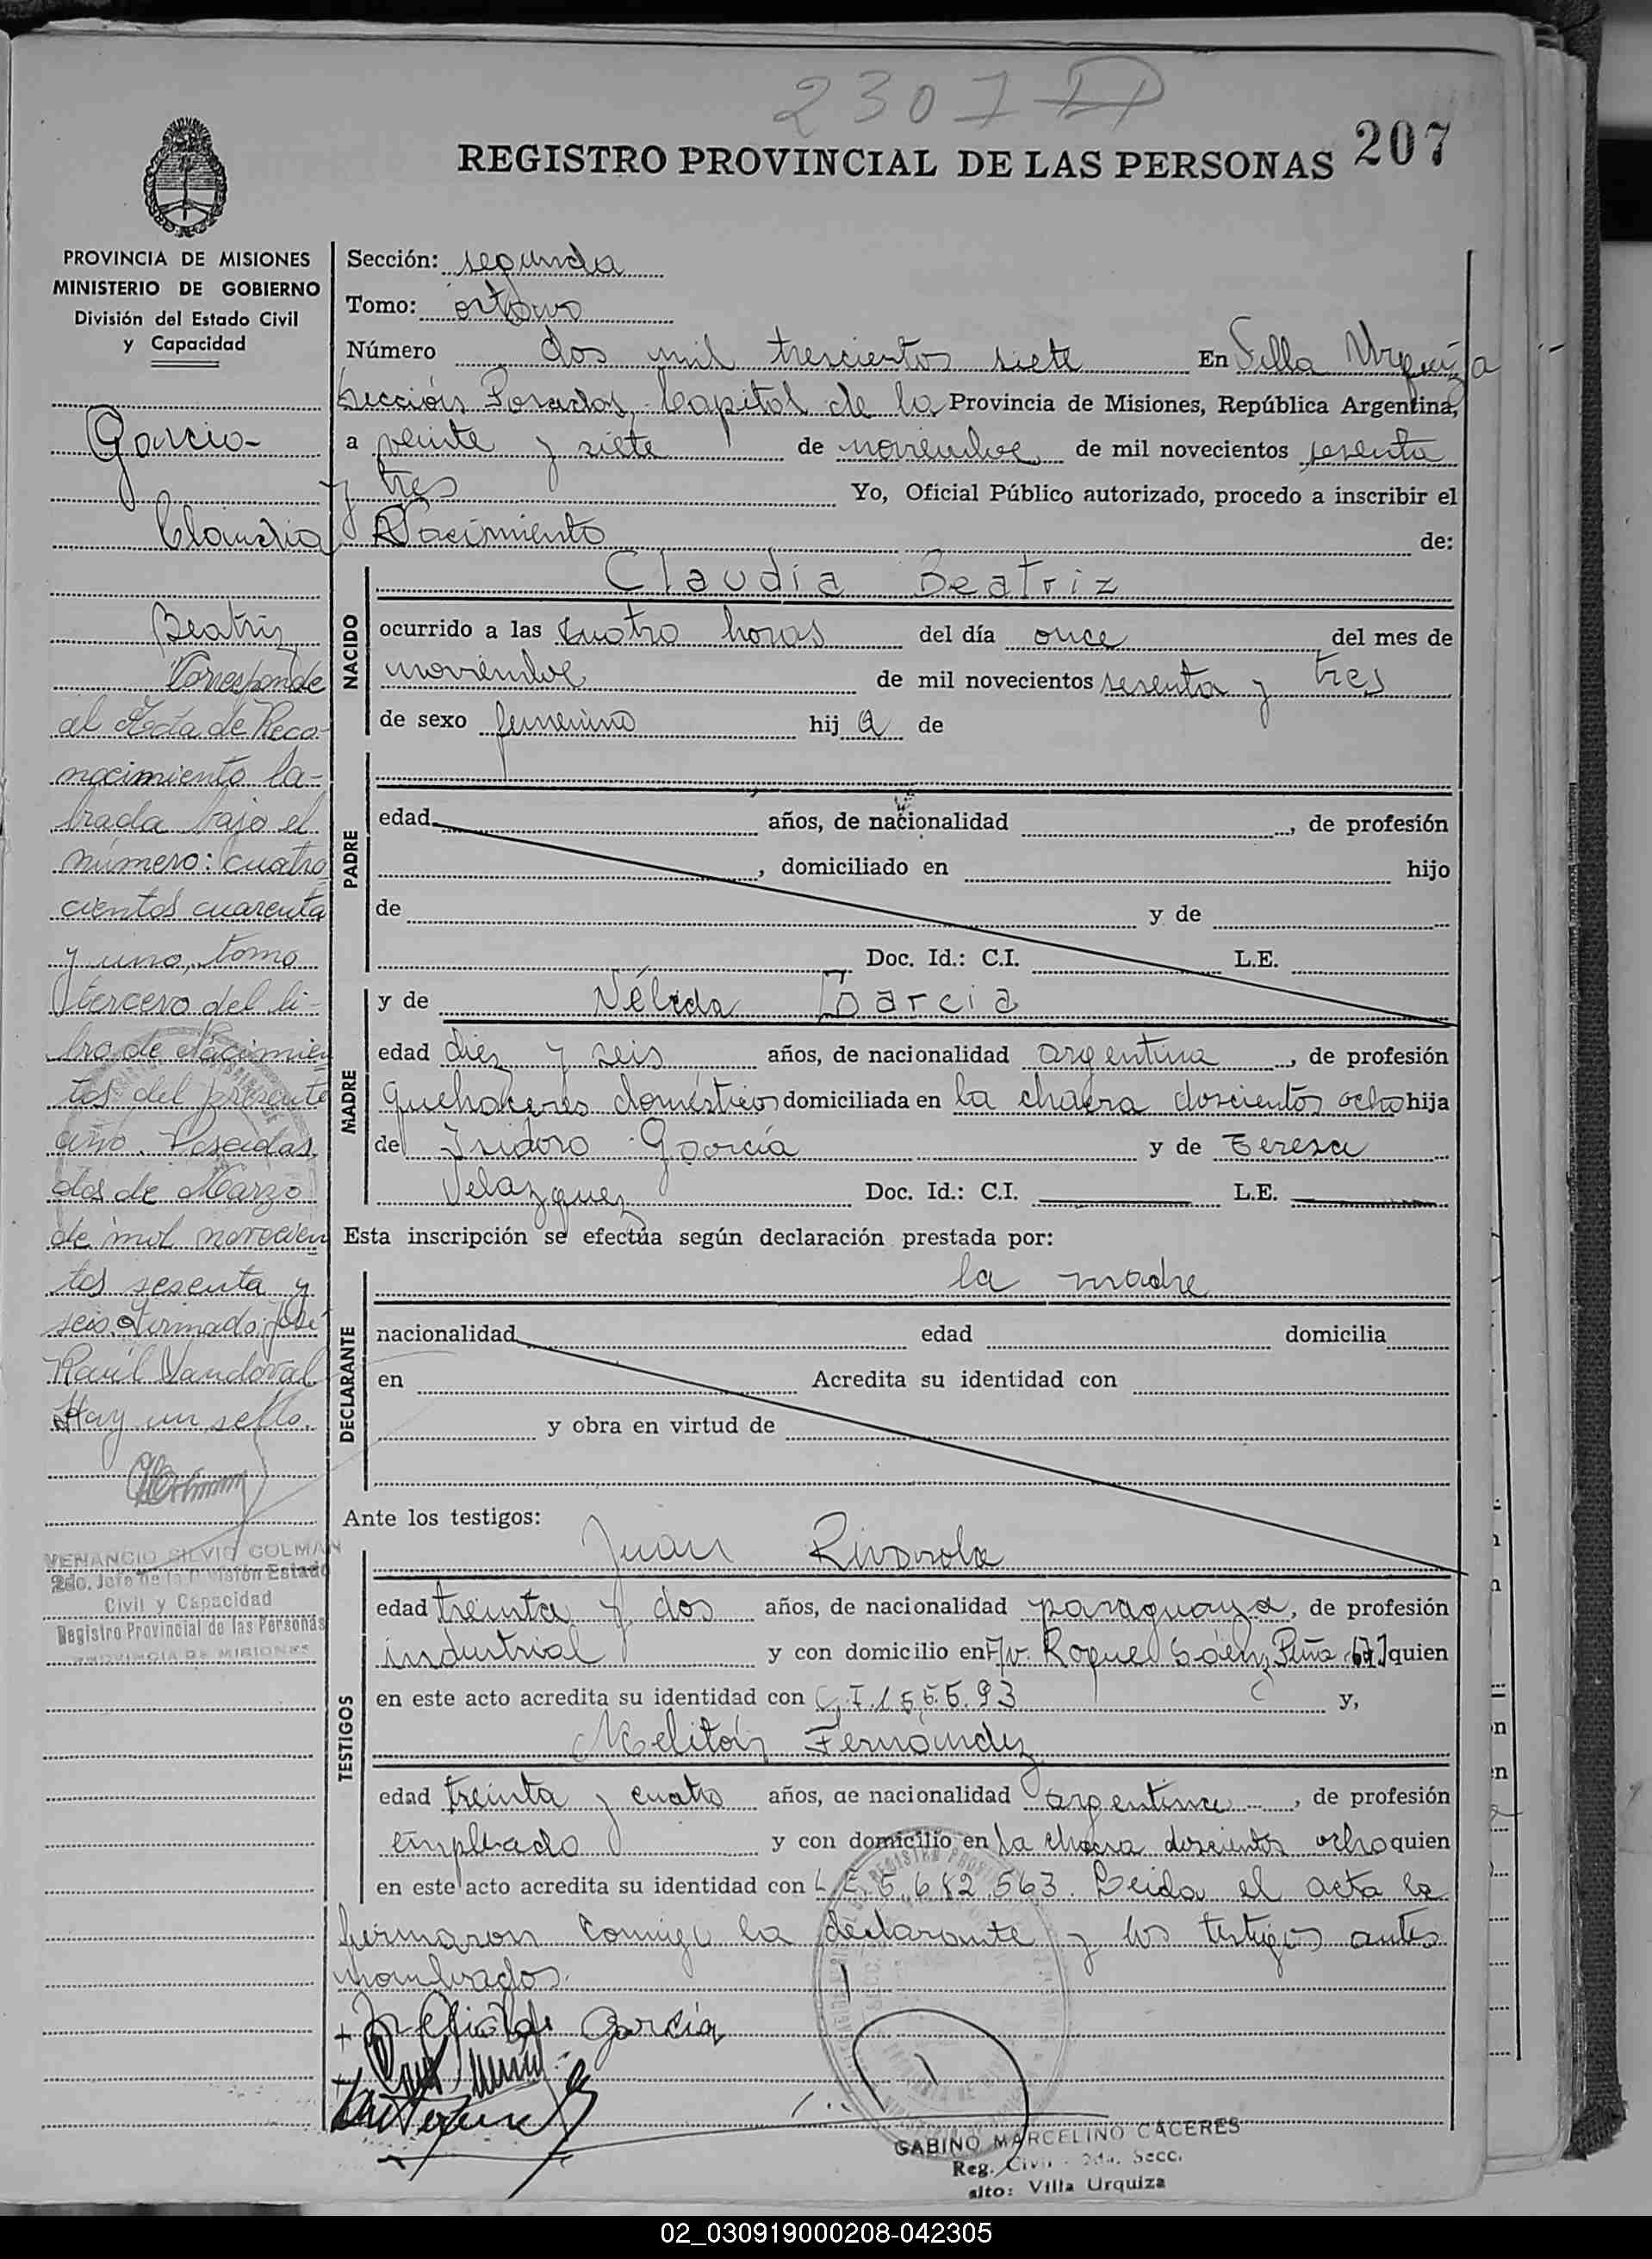 2307
REGISTRO PROVINCIAL DE LAS PERSONAS 207
PROVINCIA DE MISIONES
MINISTERIO DE GOBIERNO
División del Estado Civil
y Capacidad
Garcia
Claudia
Beatriz
Corresponde
al Acta de Reco-
nocimiento la-
brada bajo el
número: cuatro
cientos cuarenta
y uno, tomo
tercero del li-
bro de Nacimien
tos del presente
año. Posadas,
dos de Marzo
de mil novecien
tos sesenta y
seis. Firmado: José
Raúl Sandoval.
Hay un sello.
VENANCIO SILVIO COLMAN
2do. Jefe de la División Estado
Civil y Capacidad
Registro Provincial de las Personas
PROVINCIA DE MISIONES
Sección: segunda
Tomo: octavo
Número dos mil trescientos siete En Villa Urquiza
Sección Posadas, Capital de la Provincia de Misiones, República Argentina,
a veinte y siete de noviembre de mil novecientos sesenta
y tres Yo, Oficial Público autorizado, procedo a inscribir el
Nacimiento de:
NACIDO
Claudia Beatriz
ocurrido a las cuatro horas del día once del mes de
noviembre de mil novecientos sesenta y tres
de sexo femenino hij a de
PADRE
edad años, de nacionalidad , de profesión
, domiciliado en hijo
de y de
Doc. Id.: C.I. L.E.
MADRE
y de Nélida Garcia
edad diez y seis años, de nacionalidad argentina , de profesión
quehaceres domésticos domiciliada en la chacra doscientos ocho hija
de Isidoro García y de Teresa
Velazquez Doc. Id.: C.I. L.E.
Esta inscripción se efectúa según declaración prestada por:
DECLARANTE
la madre
nacionalidad edad domicilia
en Acredita su identidad con
y obra en virtud de
Ante los testigos:
TESTIGOS
Juan Rivarola
edad treinta y dos años, de nacionalidad paraguaya, de profesión
industrial y con domicilio en Av. Roque Sáenz Peña quien
en este acto acredita su identidad con C.I. 155.593 y,
Melitón Fernández
edad treinta y cuatro años, de nacionalidad argentina , de profesión
empleado y con domicilio en la chacra doscientos ocho quien
en este acto acredita su identidad con L.E. 5.682.563. Leida el acta la
firmaron conmigo la declarante y los testigos antes
nombrados.
Garcia
GABINO MARCELINO CACERES
Reg. Civil - 2da. Secc.
alto: Villa Urquiza
02_030919000208-042305